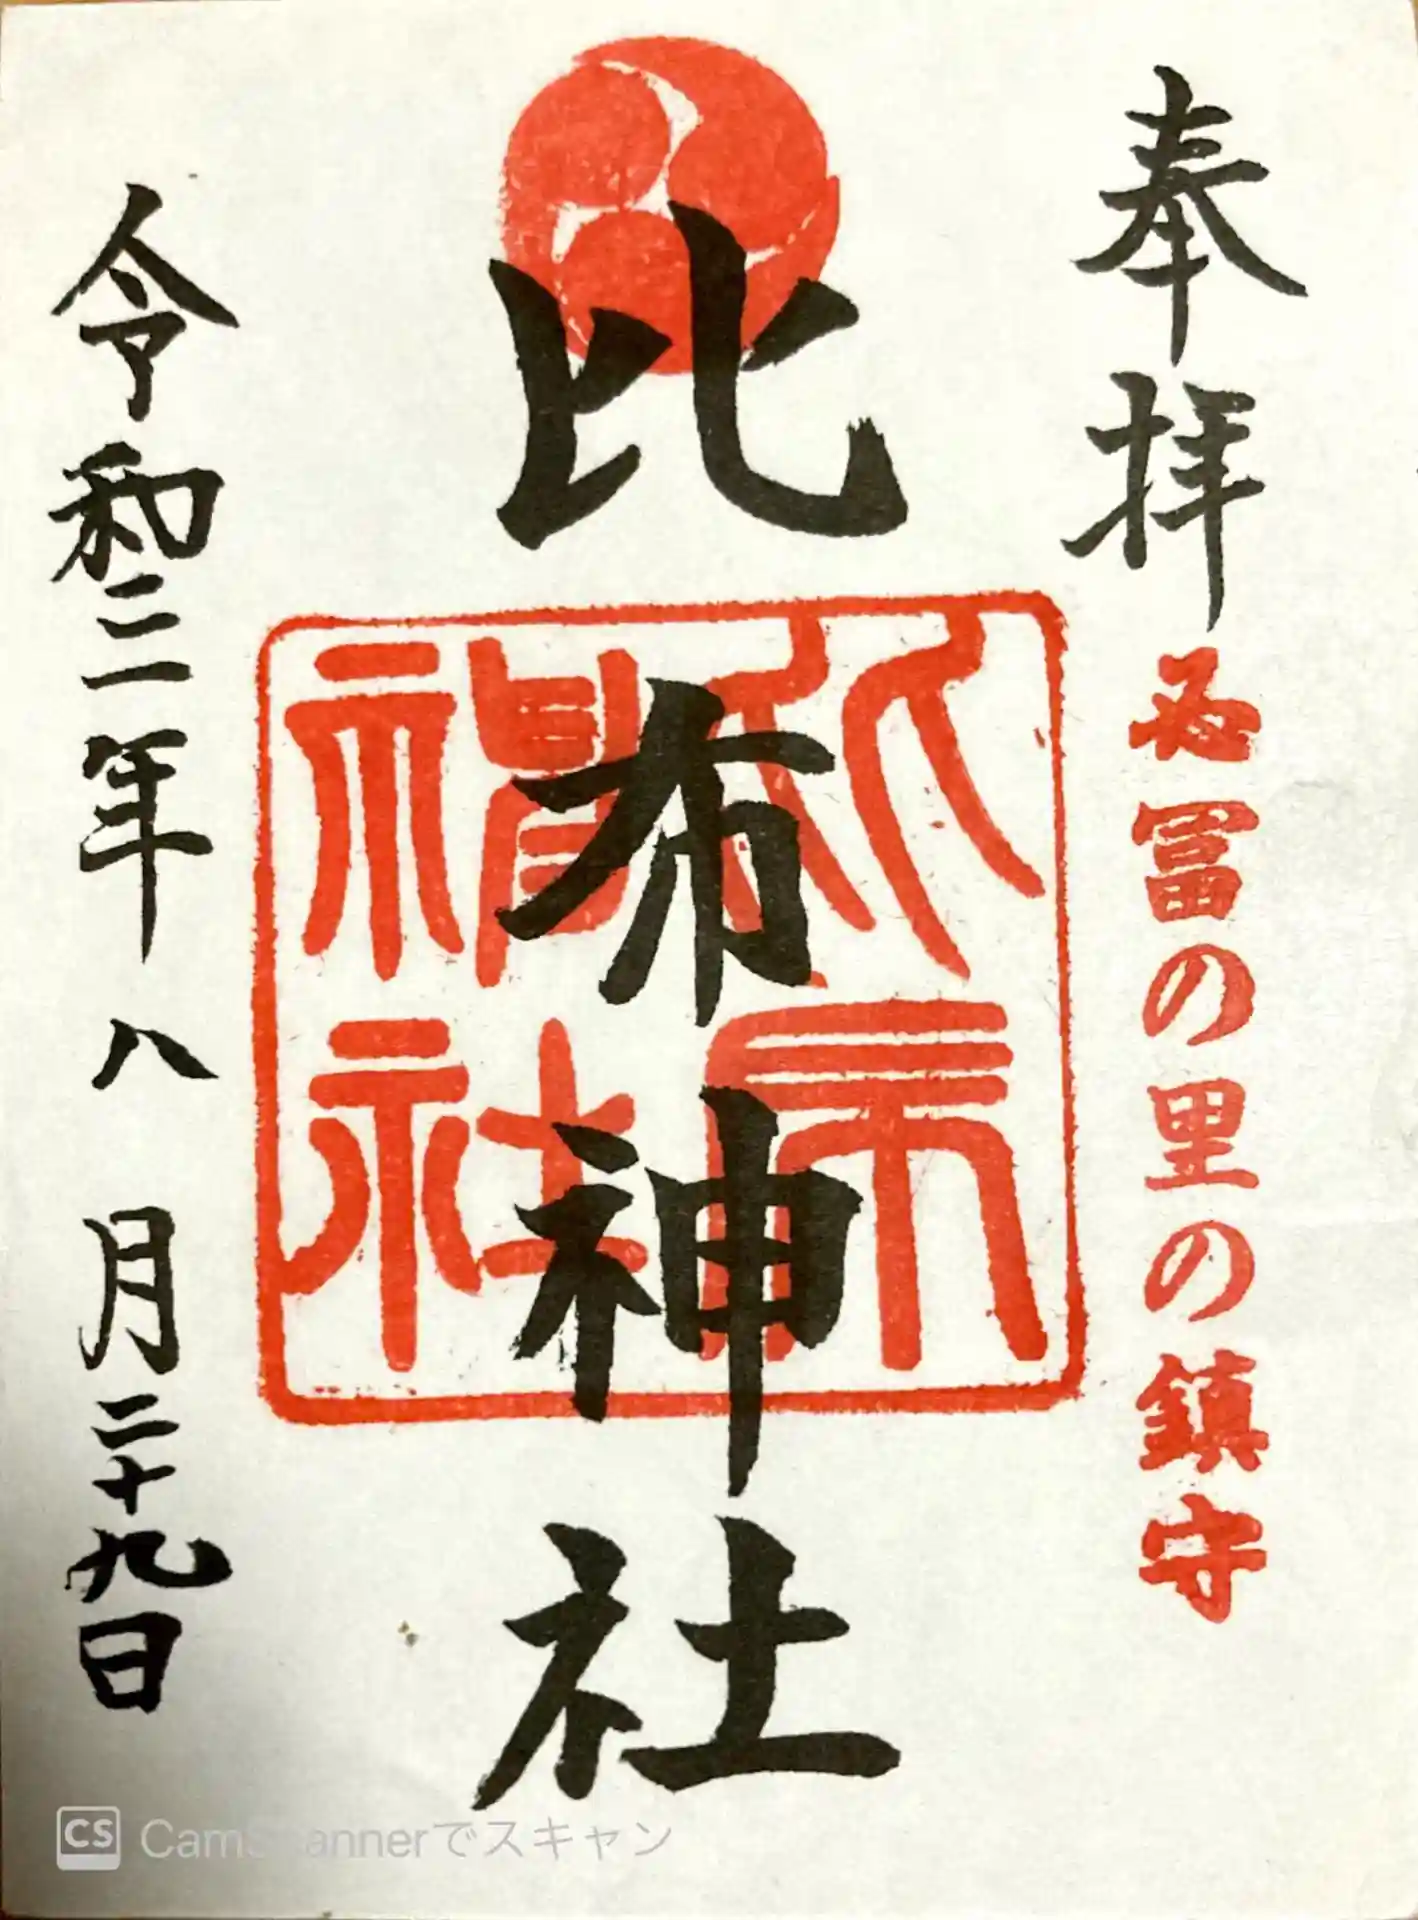 奉拝
必冨の里の鎮守
比布神社
比布神社
令和二年八月二十九日
CS CamScannerでスキャン